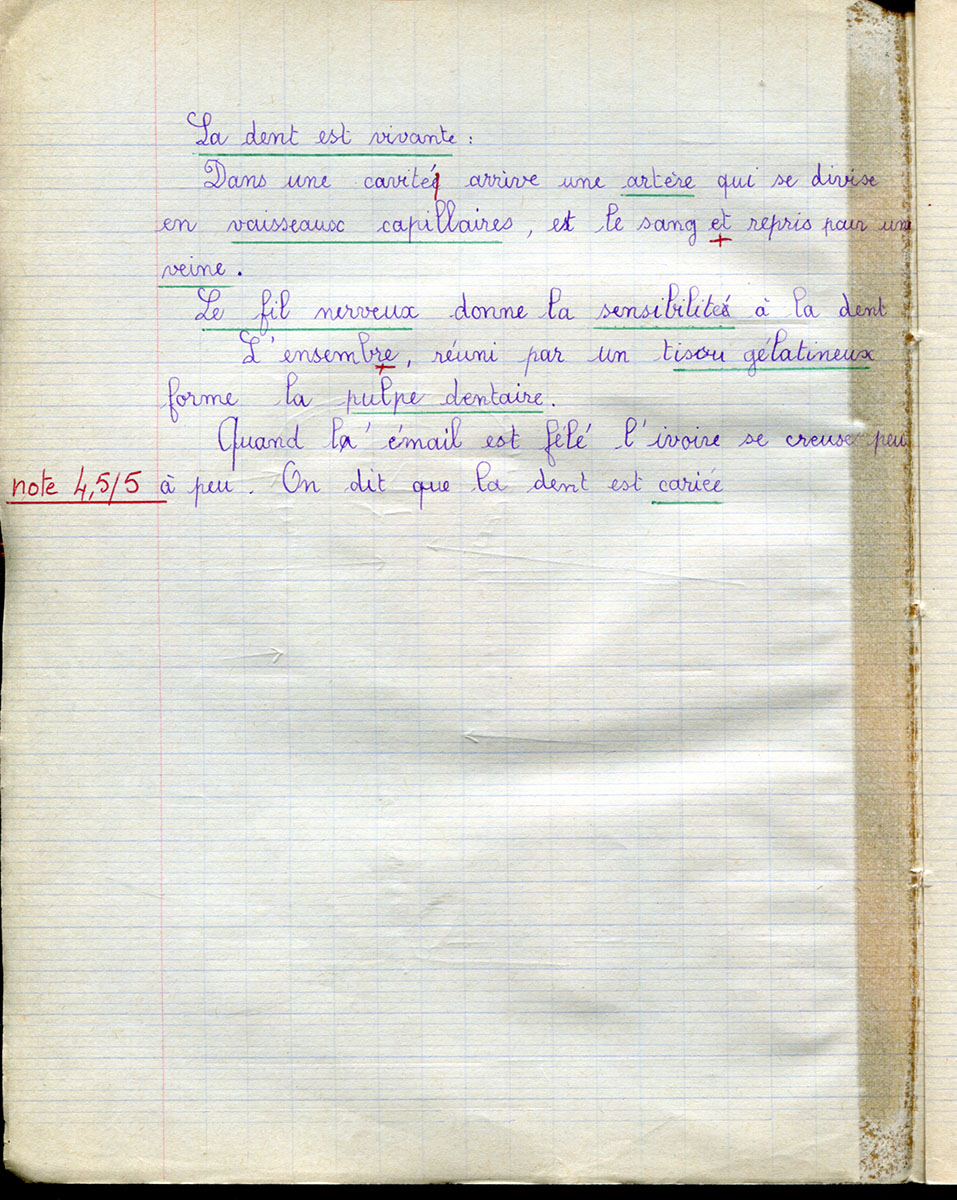 La dent est vivante :
Dans une cavité arrive une artère qui se divise
en vaisseaux capillaires, et le sang et repris par une
veine.
Le fil nerveux donne la sensibilité à la dent
L'ensembre, réuni par un tisou gélatineux
forme la pulpe dentaire.
Quand l'émail est fêlé l'ivoire se creuse peu
note 4,5/5 à peu. On dit que la dent est cariée